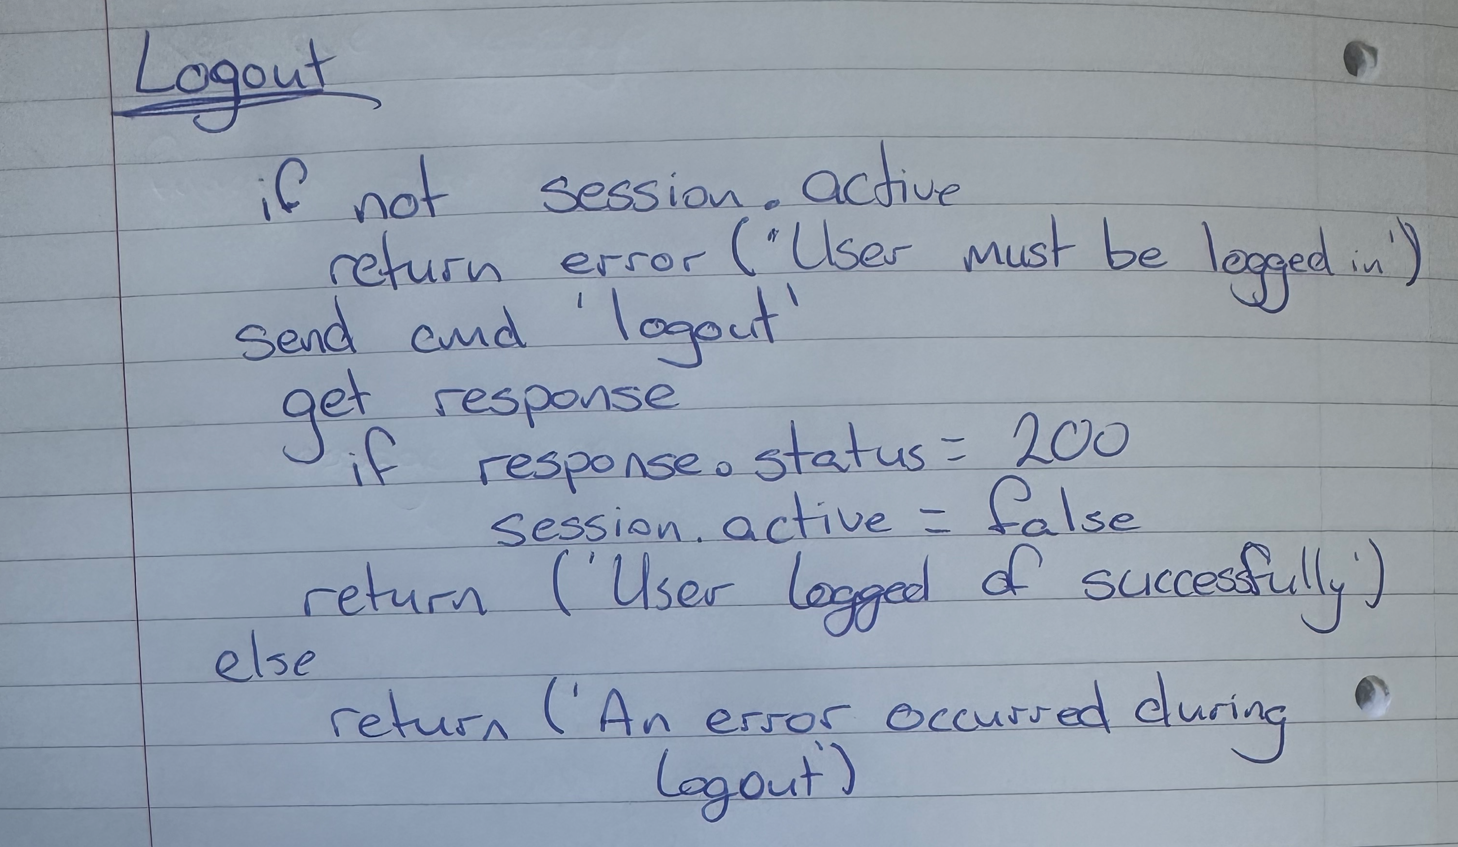 Logout
if not session.active
return error ('User must be logged in')
send cmd 'logout'
get response
if response.status = 200
session.active = false
return ('User logged of successfully')
else
return ('An error occurred during
logout')